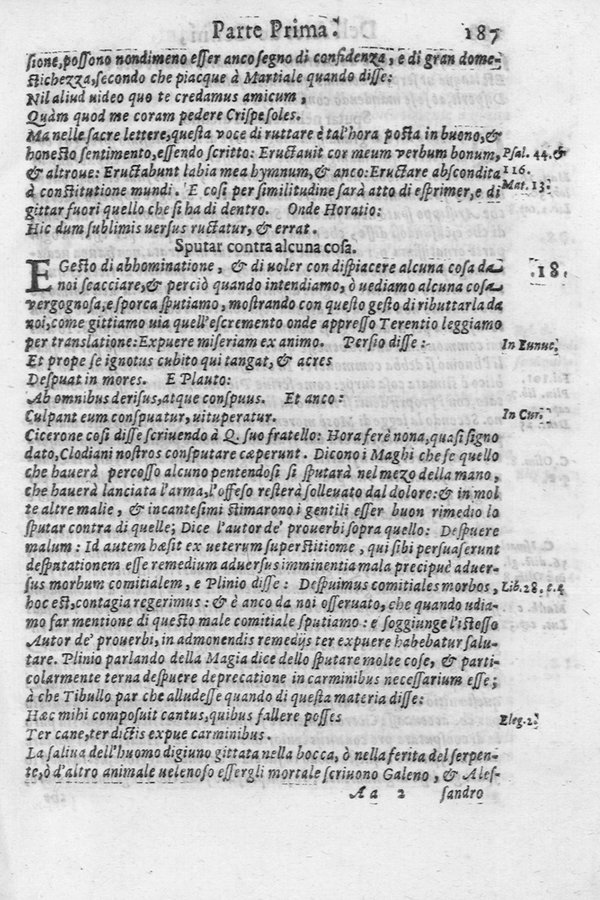 Parte Prima. 187
sione, possono nondimeno esser anco segno di confidenza, e di gran dome-
stichezza, secondo che piacque à Martiale quando disse:
Nil aliud uideo quo te credamus amicum,
Quàm quod me coram pedere Crispe soles.
Ma nelle sacre lettere, questa voce di ruttare è tal'hora posta in buono, &
honesto sentimento, essendo scritto: Eructauit cor meum verbum bonum, Psal. 44. &
& altroue: Eructabunt labia mea hymnum, & anco: Eructare abscondita 116.
à constitutione mundi. E cosi per similitudine sarà atto di esprimer, e di Mat. 13.
gittar fuori quello che si ha di dentro. Onde Horatio:
Hic dum sublimis uersus ructatur, & errat.
Sputar contra alcuna cosa.
E Gesto di abhominatione, & di uoler con dispiacere alcuna cosa da 18.
noi scacciare, & perciò quando intendiamo, ò uediamo alcuna cosa
vergognosa, e sporca sputiamo, mostrando con questo gesto di ributtarla da
noi, come gittiamo uia quell'escremento onde appresso Terentio leggiamo
per translatione: Expuere miseriam ex animo. Persio disse: In Eunuc.
Et prope se ignotus cubito qui tangat, & acres
Despuat in mores. E Plauto:
Ab omnibus derisus, atque conspuus. Et anco:
Culpant eum conspuatur, uituperatur. In Cur.
Cicerone cosi disse scriuendo à Q. suo fratello: Hora ferè nona, quasi signo
dato, Clodiani nostros consputare cæperunt. Dicono i Maghi che se quello
che hauerà percosso alcuno pentendosi si sputarà nel mezo della mano,
che hauerà lanciata l'arma, l'offeso resterà solleuato dal dolore: & in mol
te altre malie, & incantesimi stimarono i gentili esser buon rimedio lo
sputar contra di quelle; Dice l'autor de' prouerbi sopra quello: Despuere
malum: Id autem hæsit ex ueterum superstitiome, qui sibi persuaserunt
desputationem esse remedium aduersus imminentia mala precipuè aduer-
sus morbum comitialem, e Plinio disse: Despuimus comitiales morbos, Lib. 28. c. 4
hoc est, contagia regerimus: & è anco da noi osseruato, che quando udia-
mo far mentione di questo male comitiale sputiamo: e soggiunge l'istesso
Autor de' prouerbi, in admonendis remedijs ter expuere habebatur salu-
tare. Plinio parlando della Magia dice dello sputare molte cose, & parti-
colarmente terna despuere deprecatione in carminibus necessarium esse;
à che Tibullo par che alludesse quando di questa materia disse:
Hæc mihi composuit cantus, quibus fallere posses Eleg. 2.
Ter cane, ter dictis expue carminibus.
La saliua dell'huomo digiuno gittata nella bocca, ò nella ferita del serpen-
te, ò d'altro animale uelenoso essergli mortale scriuono Galeno, & Ales-
A a 2 sandro